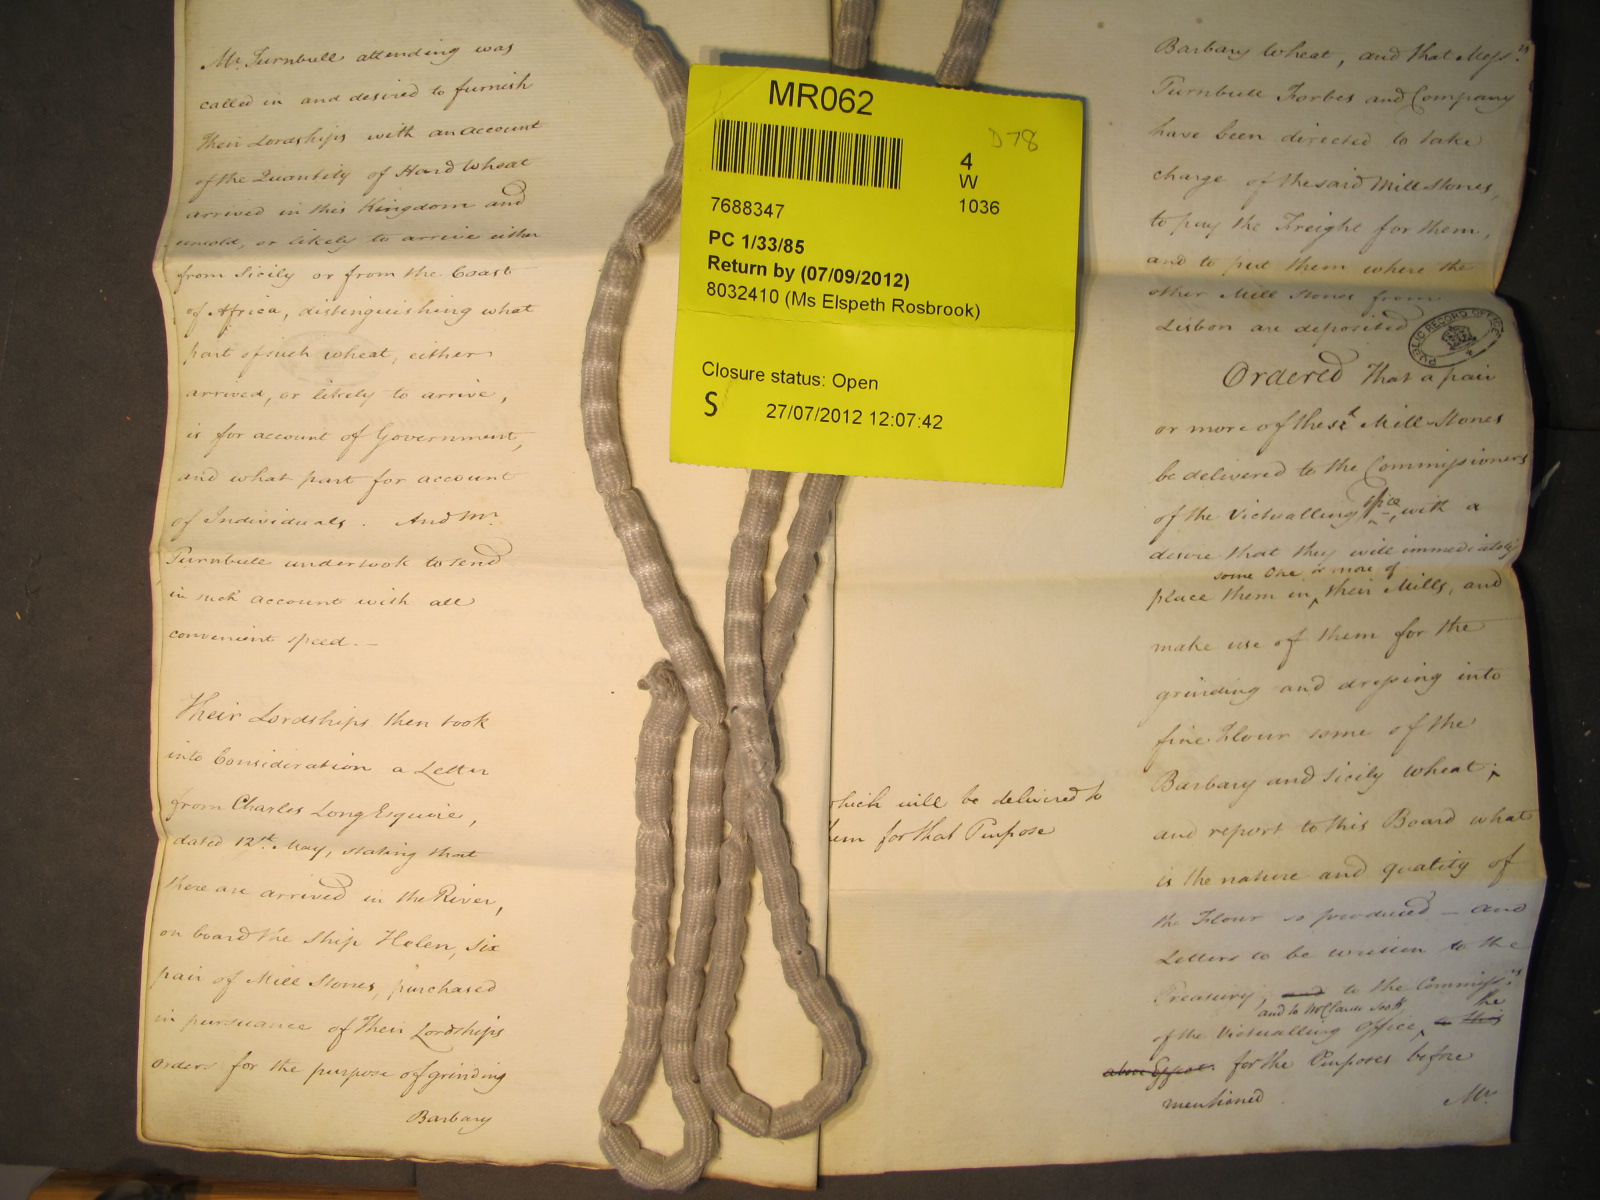 Mr. Turnbull attending was
called in and desired to furnish
their Lordships with an account
of the Quantity of Hard Wheat
arrived in this Kingdom and
unsold, or likely to arrive either
from Sicily or from the Coast
of Africa, distinguishing what
part of such wheat, either
arrived, or likely to arrive,
is for account of Government,
and what part for account
of Individuals. And Mr.
Turnbull undertook to send
in such account with all
convenient speed. —
Their Lordships then took
into Consideration a Letter
from Charles Long Esquire,
dated 12th. May, stating that
there are arrived in the River,
on board the Ship Helen, six
pair of Mill Stones, purchased
in pursuance of Their Lordships
orders for the purpose of grinding
Barbary
MR062
D78
4
W
1036
7688347
PC 1/33/85
Return by (07/09/2012)
8032410 (Ms Elspeth Rosbrook)
Closure status: Open
S 27/07/2012 12:07:42
which will be delivered to
them for that Purpose
Barbary Wheat, and that Messrs.
Turnbull Forbes and Company
have been directed to take
charge of the said Mill Stones,
to pay the Freight for them,
and to put them where the
other Mill Stones from
Lisbon are deposited
PUBLIC RECORD OFFICE
Ordered That a pair
or more of these Mill-Stones
be delivered to the Commissioners
of the Victualling Office, with a
desire that they will immediately
some one or more of
place them in their Mills, and
make use of them for the
grinding and dressing into
fine Flour some of the
Barbary and Sicily wheat;
and report to this Board what
is the nature and quality of
the Flour so produced — and
Letters to be written to the
Treasury, and to the Commissrs.
and to Mr Claude Scott the
of the Victualling Office, to this
above Effect. for the Purposes before
mentioned.
Mr.